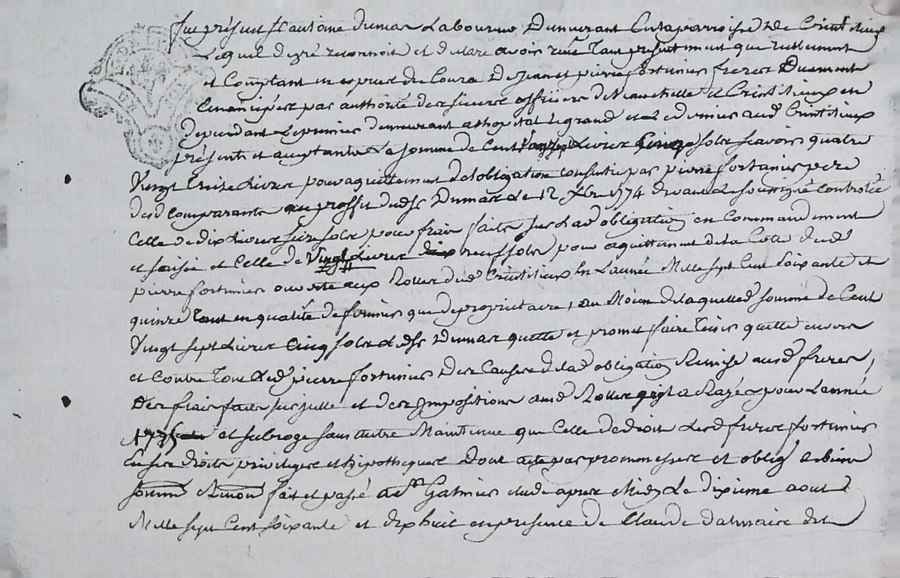 fut présent S. antoine dumas Laboureur demeurant en la parroisse de Crintilieux
Lequel degré reconnoit et declare avoir reçu tant presentement que reellement
et Comptant en especes du Cours de Jean et pierre fortunier freres duement
émancipés par authorité de sieurs officiers de et Crintilieux en
dependant Le premier demeurant a hopital le grand et Led. dernier aud. Crintilieux
présents et acceptants La somme de Cent vingt sept Livres Cinq sols scavoir quatre
Vingt treize Livres pour acquittement de lobligation consentie par pierre fortunier pere
desd. comparants au proffit dud. S. Dumas le 12 1774 devant Le soussigné controllée
Celle de dix Livres seize sols pour frais faits sur Lad. obligation en Commandement
et saisie et Celle de Vingt Livres neuf sols pour acquittement de la Cotte dud.
pierre fortunier ouverte aux Rolles dud. Crintilieux en Lannée Mille sept Cent soixante et
quinze tant en qualité de fermier que de proprietaire, au Moien de laquelle d. somme de Cent
Vingt sept Livres Cinq sols Led. S. Dumas quitte et promet faire tenir quitte envers
et Contre tous Led. pierre fortunier des Causes de lad. obligation Remise auxd. freres,
des frais faits sur jcelle et des jmpositions aud. Rolle pour Lannée
1775 et subroge sans autre Maintenue que Celle de droit Lesd. freres fortunier
en ses droits privileges et hipotheques dont acte par promesses et oblig. de biens
soumis. Renon. fait et passé a St. Galmier etude apres midy Le dixieme aout
Mille sept Cent soixante et dix huit en presence de Claude